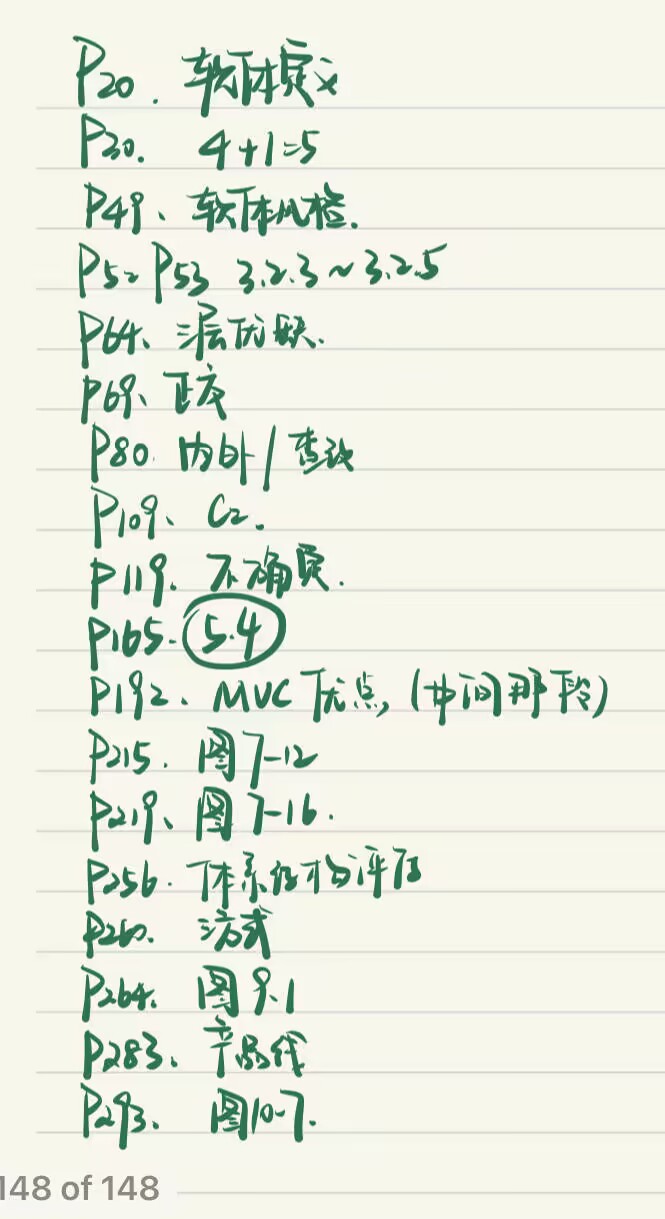 P20. 软体定义
P30. 4+1=5
P49、软体风格.
P52 P53 3.2.3~3.2.5
P64、三层优缺.
P69、正交
P80. 内外/查找
P109、C2.
P119、不确定.
P165. 5.4
P192、MVC优点,(中间那段)
P215. 图7-12
P219、图7-16.
P256. 体系结构评估
P260. 三方式
P264. 图9.1
P283、产品线
P293、图10-7.
148 of 148